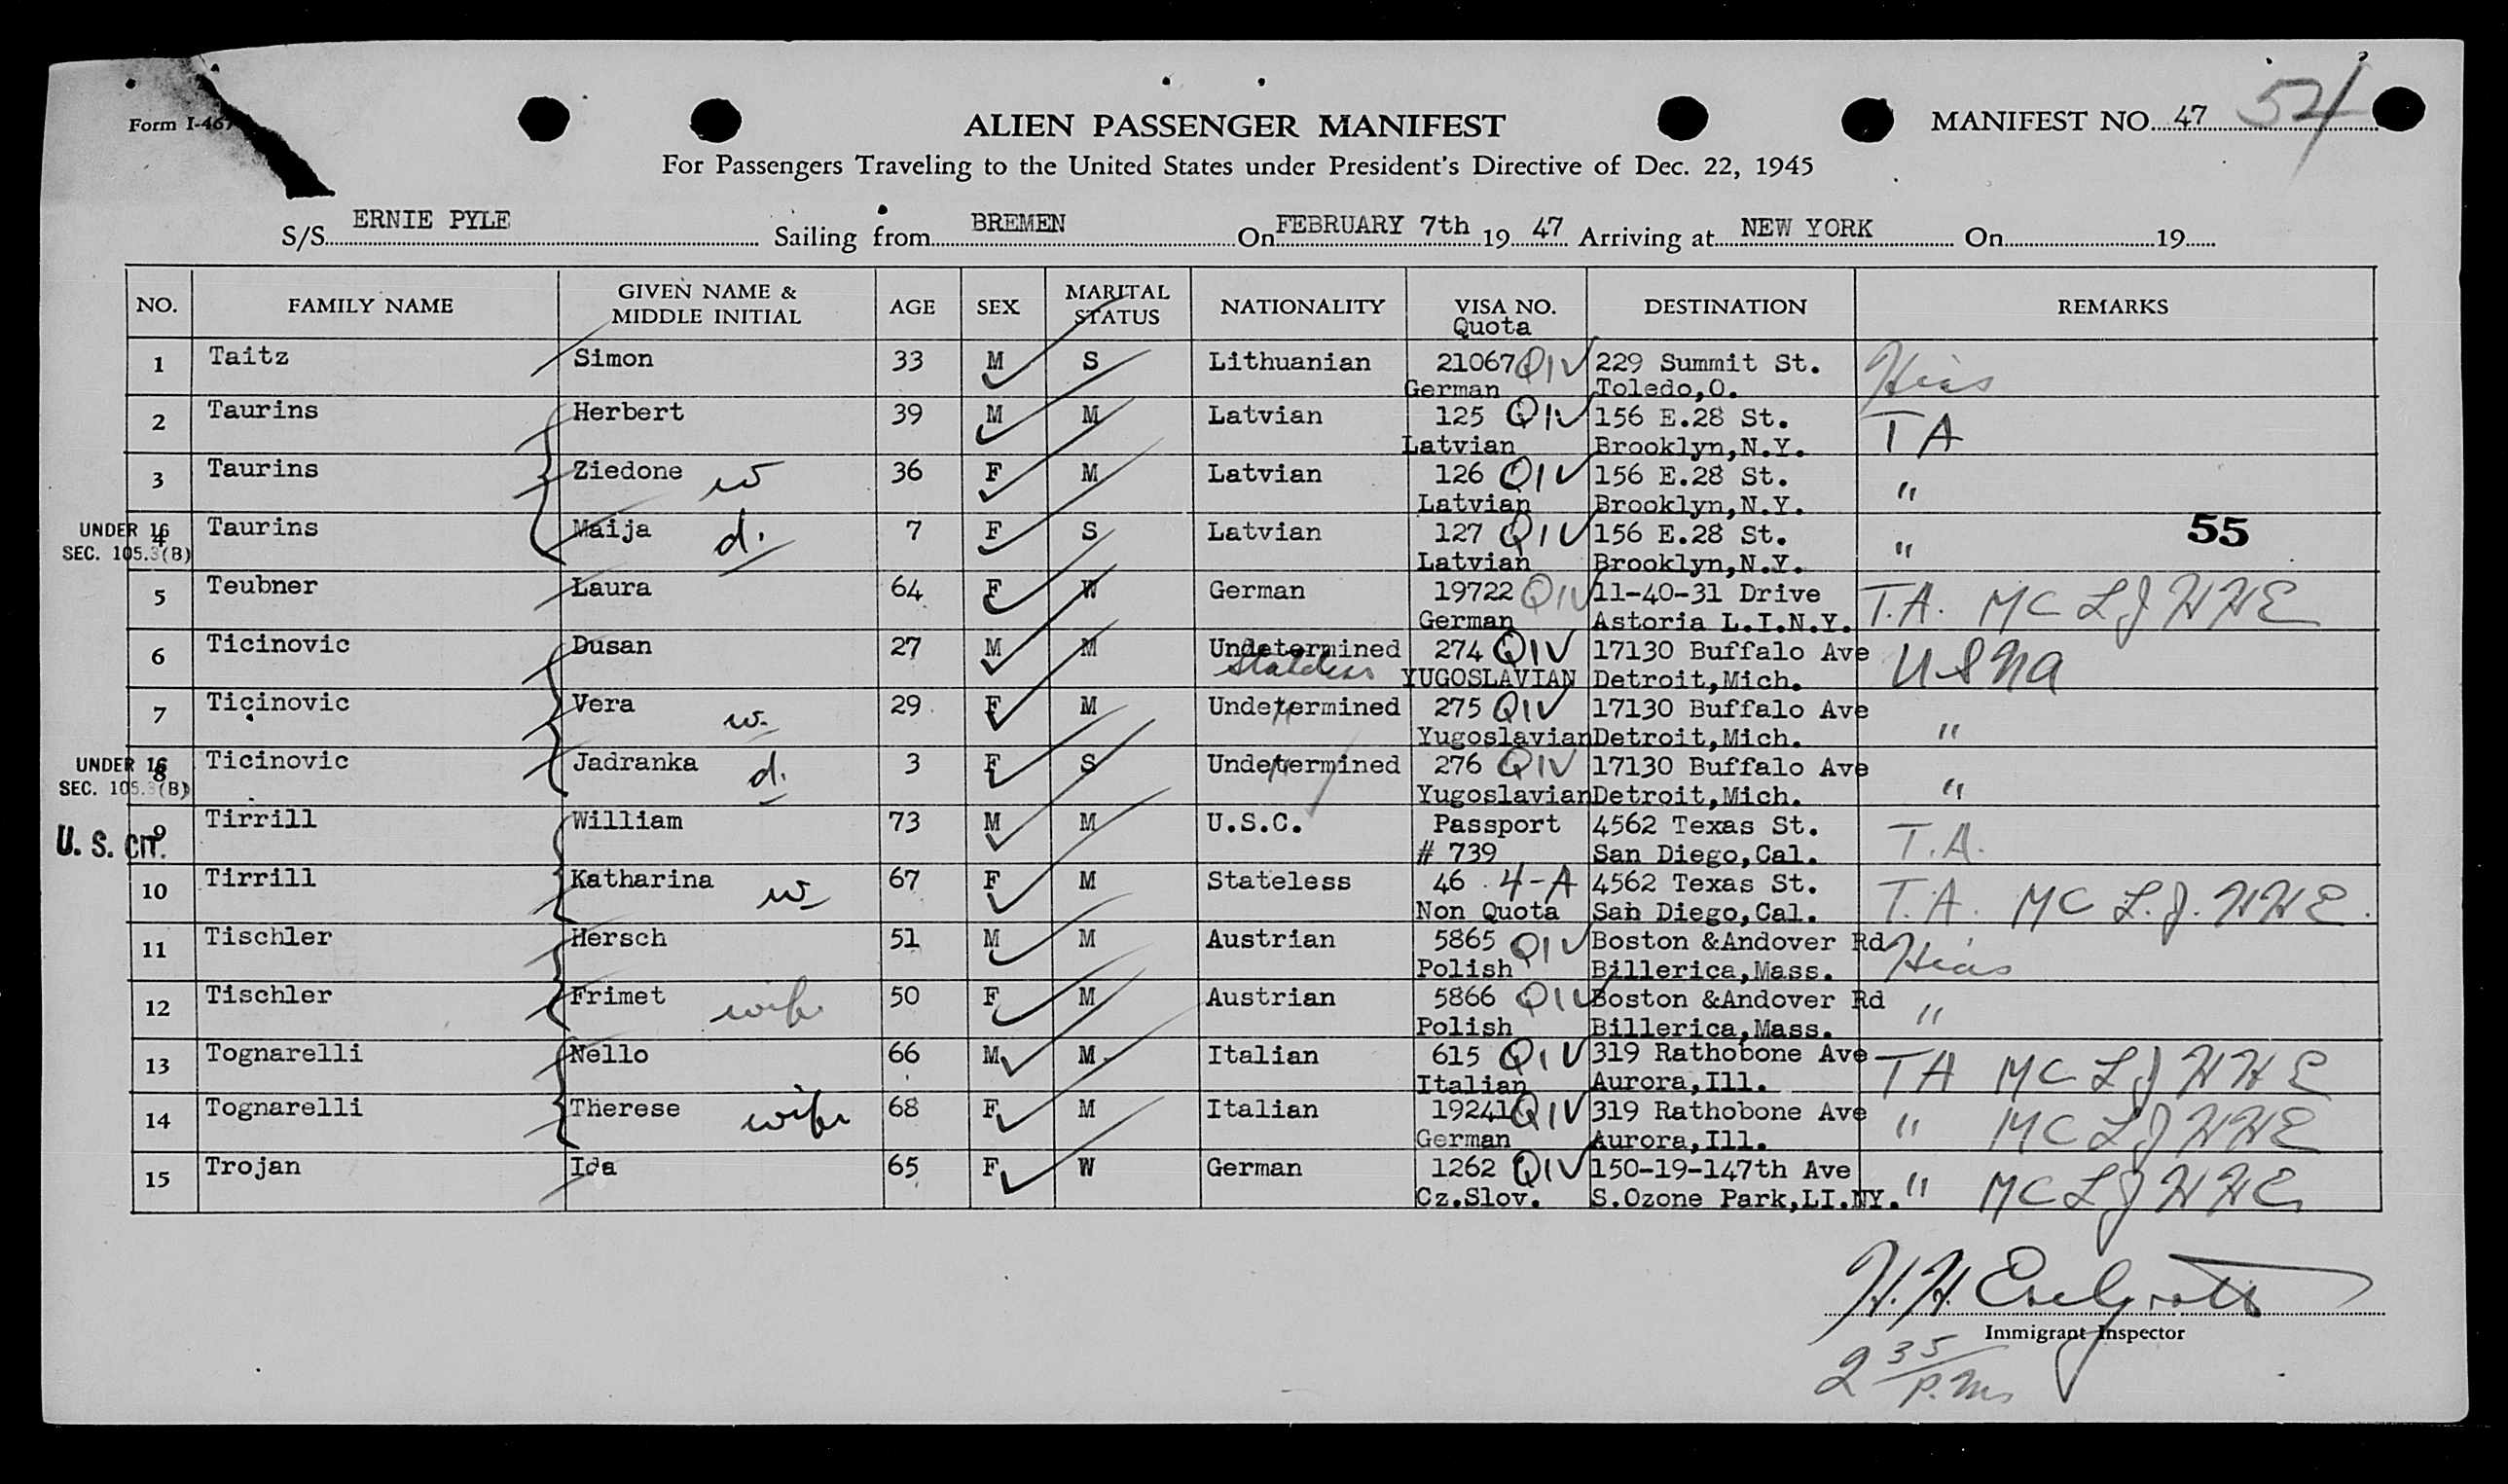 Form I-467
ALIEN PASSENGER MANIFEST
MANIFEST NO. 47 54
For Passengers Traveling to the United States under President's Directive of Dec. 22, 1945
S/S ERNIE PYLE Sailing from BREMEN On FEBRUARY 7th 19 47 Arriving at NEW YORK On 19
NO. FAMILY NAME GIVEN NAME & MIDDLE INITIAL AGE SEX MARITAL STATUS NATIONALITY VISA NO. Quota DESTINATION REMARKS
1 Taitz Simon 33 M S Lithuanian 21067 QIV 229 Summit St. Hias
German Toledo,O.
2 Taurins Herbert 39 M M Latvian 125 QIV 156 E.28 St. TA
Latvian Brooklyn,N.Y.
3 Taurins Ziedone w 36 F M Latvian 126 QIV 156 E.28 St. "
Latvian Brooklyn,N.Y.
UNDER 16
SEC. 105.3(B)
4 Taurins Maija d. 7 F S Latvian 127 QIV 156 E.28 St. " 55
Latvian Brooklyn,N.Y.
5 Teubner Laura 64 F W German 19722 QIV 11-40-31 Drive T.A. MC LJ HHE
German Astoria L.I.N.Y.
6 Ticinovic Dusan 27 M M Undetermined 274 QIV 17130 Buffalo Ave USNA
Stateless YUGOSLAVIAN Detroit,Mich.
7 Ticinovic Vera w. 29 F M Undetermined " 275 QIV 17130 Buffalo Ave "
Yugoslavian Detroit,Mich.
UNDER 16
SEC. 105.3(B)
8 Ticinovic Jadranka d. 3 F S Undetermined " 276 QIV 17130 Buffalo Ave "
Yugoslavian Detroit,Mich.
U. S. CIT.
9 Tirrill William 73 M M U.S.C. Passport 4562 Texas St. T.A.
# 739 San Diego,Cal.
10 Tirrill Katharina w 67 F M Stateless 46 4-A 4562 Texas St. T.A. MC L.J. HHE.
Non Quota San Diego,Cal.
11 Tischler Hersch 51 M M Austrian 5865 QIV Boston &Andover Rd Hias
Polish Billerica,Mass.
12 Tischler Frimet wife 50 F M Austrian 5866 QIV Boston &Andover Rd "
Polish Billerica,Mass.
13 Tognarelli Nello 66 M M Italian 615 QIV 319 Rathobone Ave TA MC LJ HHE
Italian Aurora,Ill.
14 Tognarelli Therese wife 68 F M Italian 19241 QIV 319 Rathobone Ave " MC LJ HHE
German Aurora,Ill.
15 Trojan Ida 65 F W German 1262 QIV 150-19-147th Ave " MC LJ HHE
Cz.Slov. S.Ozone Park,LI.NY.
H.H.
Immigrant Inspector
2 35 p.m.